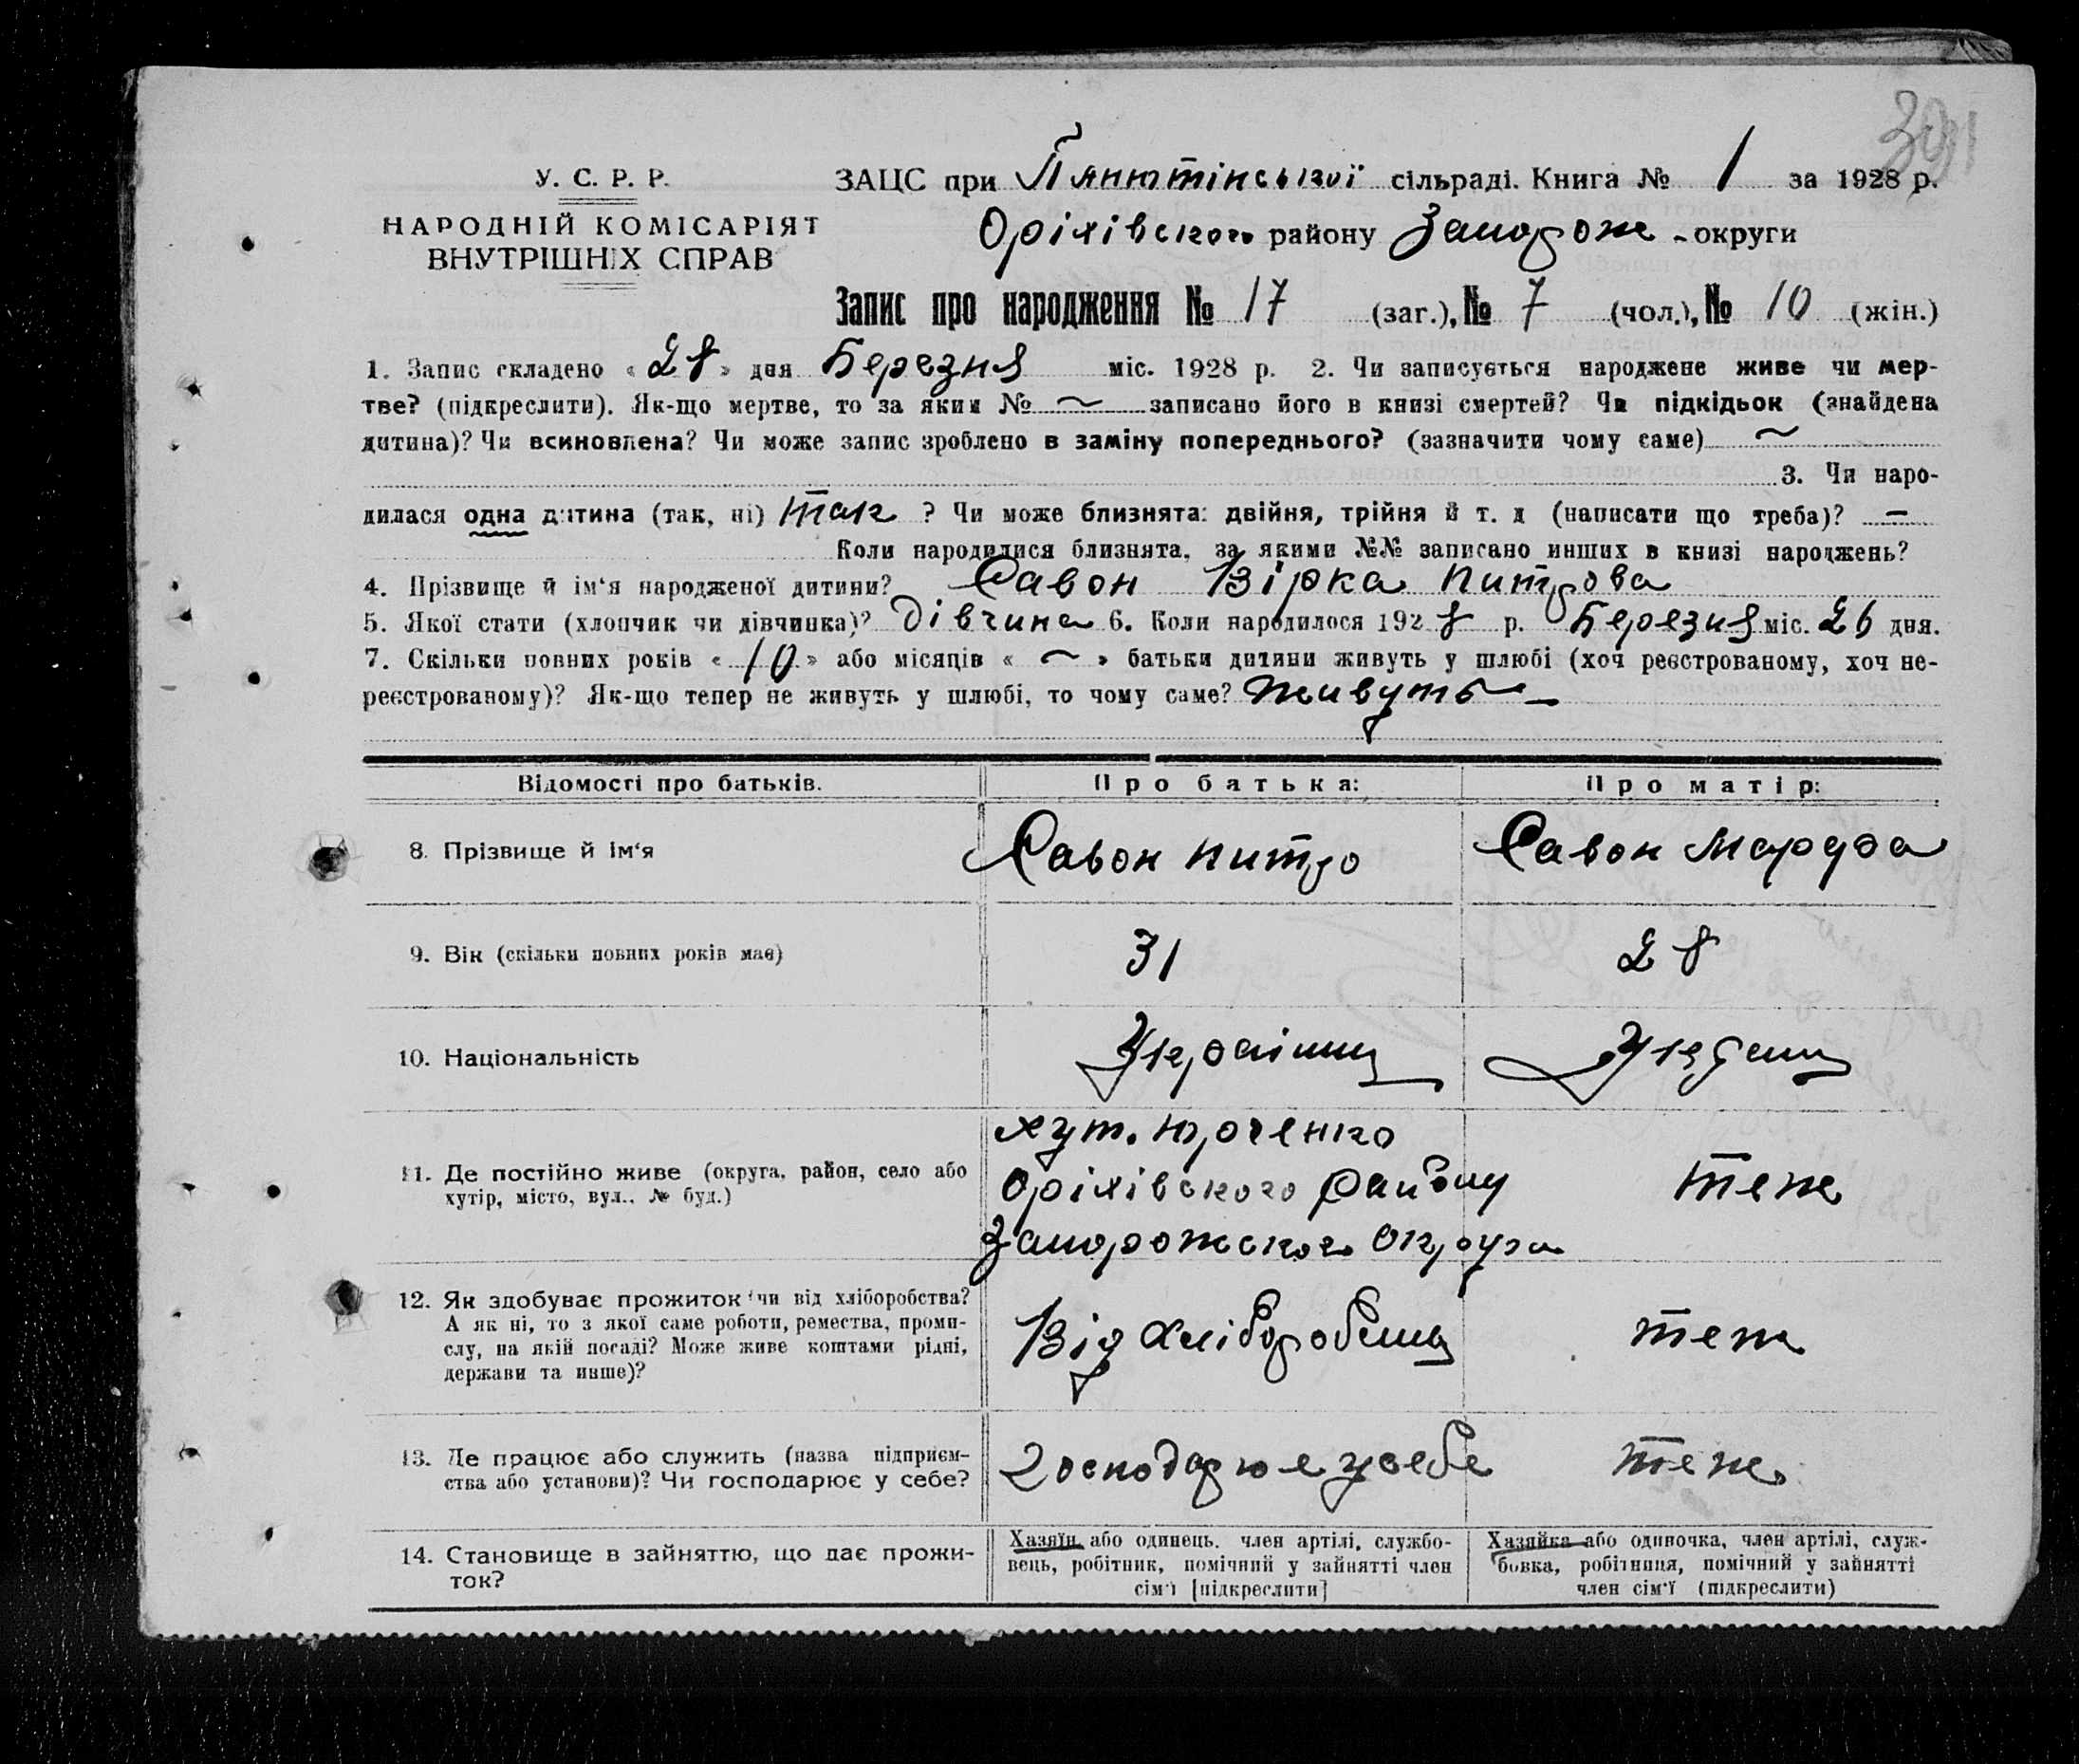 301
У. С. Р. Р.
НАРОДНІЙ КОМІСАРІЯТ
ВНУТРІШНІХ СПРАВ
ЗАЦС при сільраді. Книга № 1 за 1928 р.
Оріхівського району Запорож - округи
Запис про народження № 17 (заг.), № 7 (чол.), № 10 (жін.)
1. Запис складено « 28 » дня Березня міс. 1928 р. 2. Чи записується народжене живе чи мер-
тве? (підкреслити). Як-що мертве, то за яким № ~ записано його в книзі смертей? Чи підкідьок (знайдена
дитина)? Чи всиновлена? Чи може запис зроблено в заміну попереднього? (зазначити чому саме) ~
3. Чи наро-
дилася одна дитина (так, ні) так ? Чи може близнята: двійня, трійня й т. д (написати що треба)? —
Коли народилися близнята, за якими №№ записано инших в книзі народжень?
4. Прізвище й ім‘я народженої дитини? Савон Вірка Питрова
5. Якої стати (хлопчик чи дівчинка)? Дівчина 6. Коли народилося 1928 р. Березня міс. 26 дня.
7. Скільки повних років « 10 » або місяців « ~ » батьки дитини живуть у шлюбі (хоч реєстрованому, хоч не-
реєстрованому)? Як-що тепер не живуть у шлюбі, то чому саме? Живуть —
Відомості про батьків. Про батька: Про матір:
8. Прізвище й ім‘я Савон Питро Савон
9. Вік (скільки повних років має) 31 28
10. Національність
11. Де постійно живе (округа, район, село або
хутір, місто, вул., № буд.)
хут. Юрченко
Оріхівського Району
Запорожського Округа
теж
12. Як здобуває прожиток чи від хліборобства?
А як ні, то з якої саме роботи, ремества, проми-
слу, на якій посаді? Може живе коштами рідні,
держави та инше)?
Від теж
13. Де працює або служить (назва підприєм-
ства або установи)? Чи господарює у себе?
Господарює у себе теж
14. Становище в зайняттю, що дає прожи-
ток?
Хазяїн або одинець, член артілі, службо-
вець, робітник, помічний у зайнятті член
сім‘ї [підкреслити]
Хазяйка або одиночка, член артілі, служ-
бовка, робітниця, помічний у зайнятті
член сім‘ї (підкреслити)